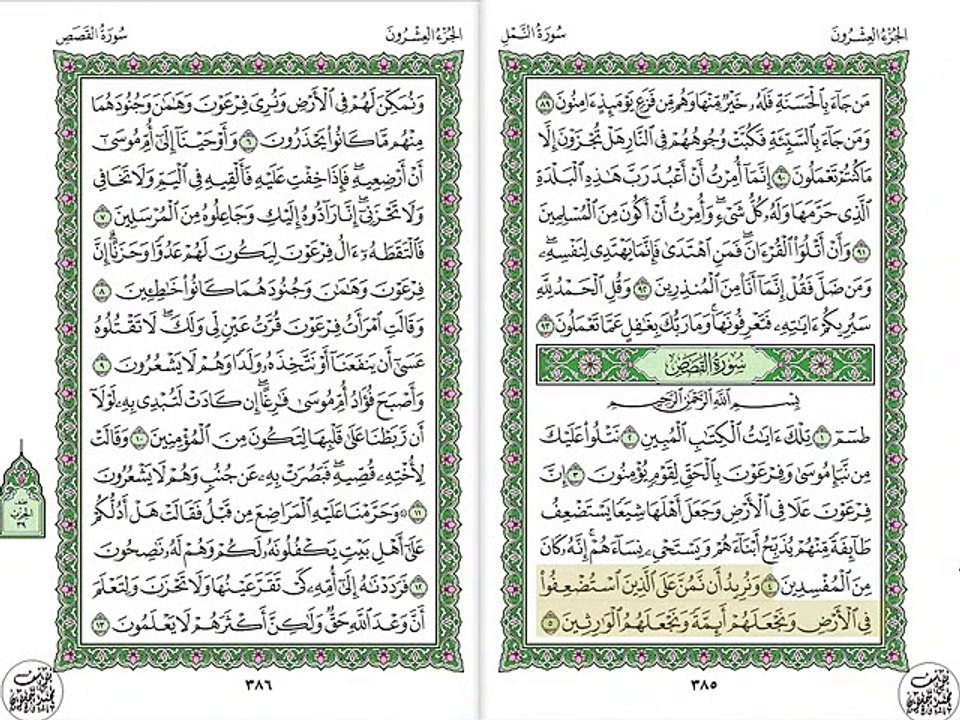 الجزء العشرون
سورة النمل
من جاء بالحسنة فله خير منها وهم من فزع يومئذ ءامنون ٨٩
ومن جاء بالسيئة فكبت وجوههم في النار هل تجزون إلا
ما كنتم تعملون ٩٠ إنما أمرت أن أعبد رب هذه البلدة
الذي حرمها وله كل شيء وأمرت أن أكون من المسلمين
٩١ وأن أتلوا القرءان فمن اهتدى فإنما يهتدي لنفسه
ومن ضل فقل إنما أنا من المنذرين ٩٢ وقل الحمد لله
سيريكم ءايته فتعرفونها وما ربك بغفل عما تعملون ٩٣
سورة القصص
بسم الله الرحمن الرحيم
طسم ١ تلك ءايت الكتب المبين ٢ نتلوا عليك
من نبإ موسى وفرعون بالحق لقوم يؤمنون ٣ إن
فرعون علا في الأرض وجعل أهلها شيعا يستضعف
طائفة منهم يذبح أبناءهم ويستحي نساءهم إنه كان
من المفسدين ٤ ونريد أن نمن على الذين استضعفوا
في الأرض ونجعلهم أئمة ونجعلهم الورثين ٥
٣٨٥
الجزء العشرون
سورة القصص
ونمكن لهم في الأرض ونري فرعون وهمن وجنودهما
منهم ما كانوا يحذرون ٦ وأوحينا إلى أم موسى
أن أرضعيه فإذا خفت عليه فألقيه في اليم ولا تخافي
ولا تحزني إنا رادوه إليك وجاعلوه من المرسلين ٧
فالتقطه ءال فرعون ليكون لهم عدوا وحزنا إن
فرعون وهمن وجنودهما كانوا خطين ٨
وقالت امرأت فرعون قرت عين لي ولك لا تقتلوه
عسى أن ينفعنا أو نتخذه ولدا وهم لا يشعرون ٩
وأصبح فؤاد أم موسى فرغا إن كادت لتبدي به لولا
أن ربطنا على قلبها لتكون من المؤمنين ١٠ وقالت
لأخته قصيه فبصرت به عن جنب وهم لا يشعرون
١١ وحرمنا عليه المراضع من قبل فقالت هل أدلكم
على أهل بيت يكفلونه لكم وهم له نصحون
١٢ فرددنه إلى أمه كي تقر عينها ولا تحزن ولتعلم
أن وعد الله حق ولكن أكثرهم لا يعلمون ١٣
الحزب
٣٩
٣٨٦